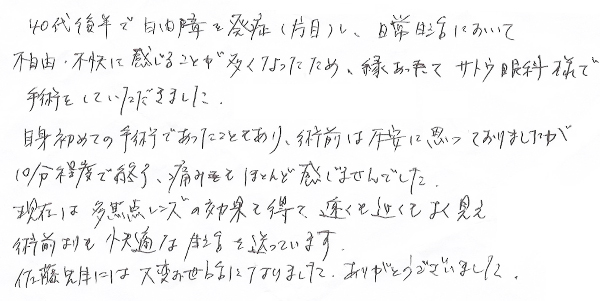 40代後半で白内障を発症(片目)し、日常生活において
不自由・不快に感じることが多くなったため、縁あってサトウ眼科様で
手術をしていただきました。
自身初めての手術であったこともあり、術前は不安に思っておりましたが
10分程度で終了、痛みもほとんど感じませんでした。
現在は多焦点レンズの効果を得て、遠くも近くもよく見え
術前よりも快適な生活を送っています。
佐藤先生には大変お世話になりました。ありがとうございました。